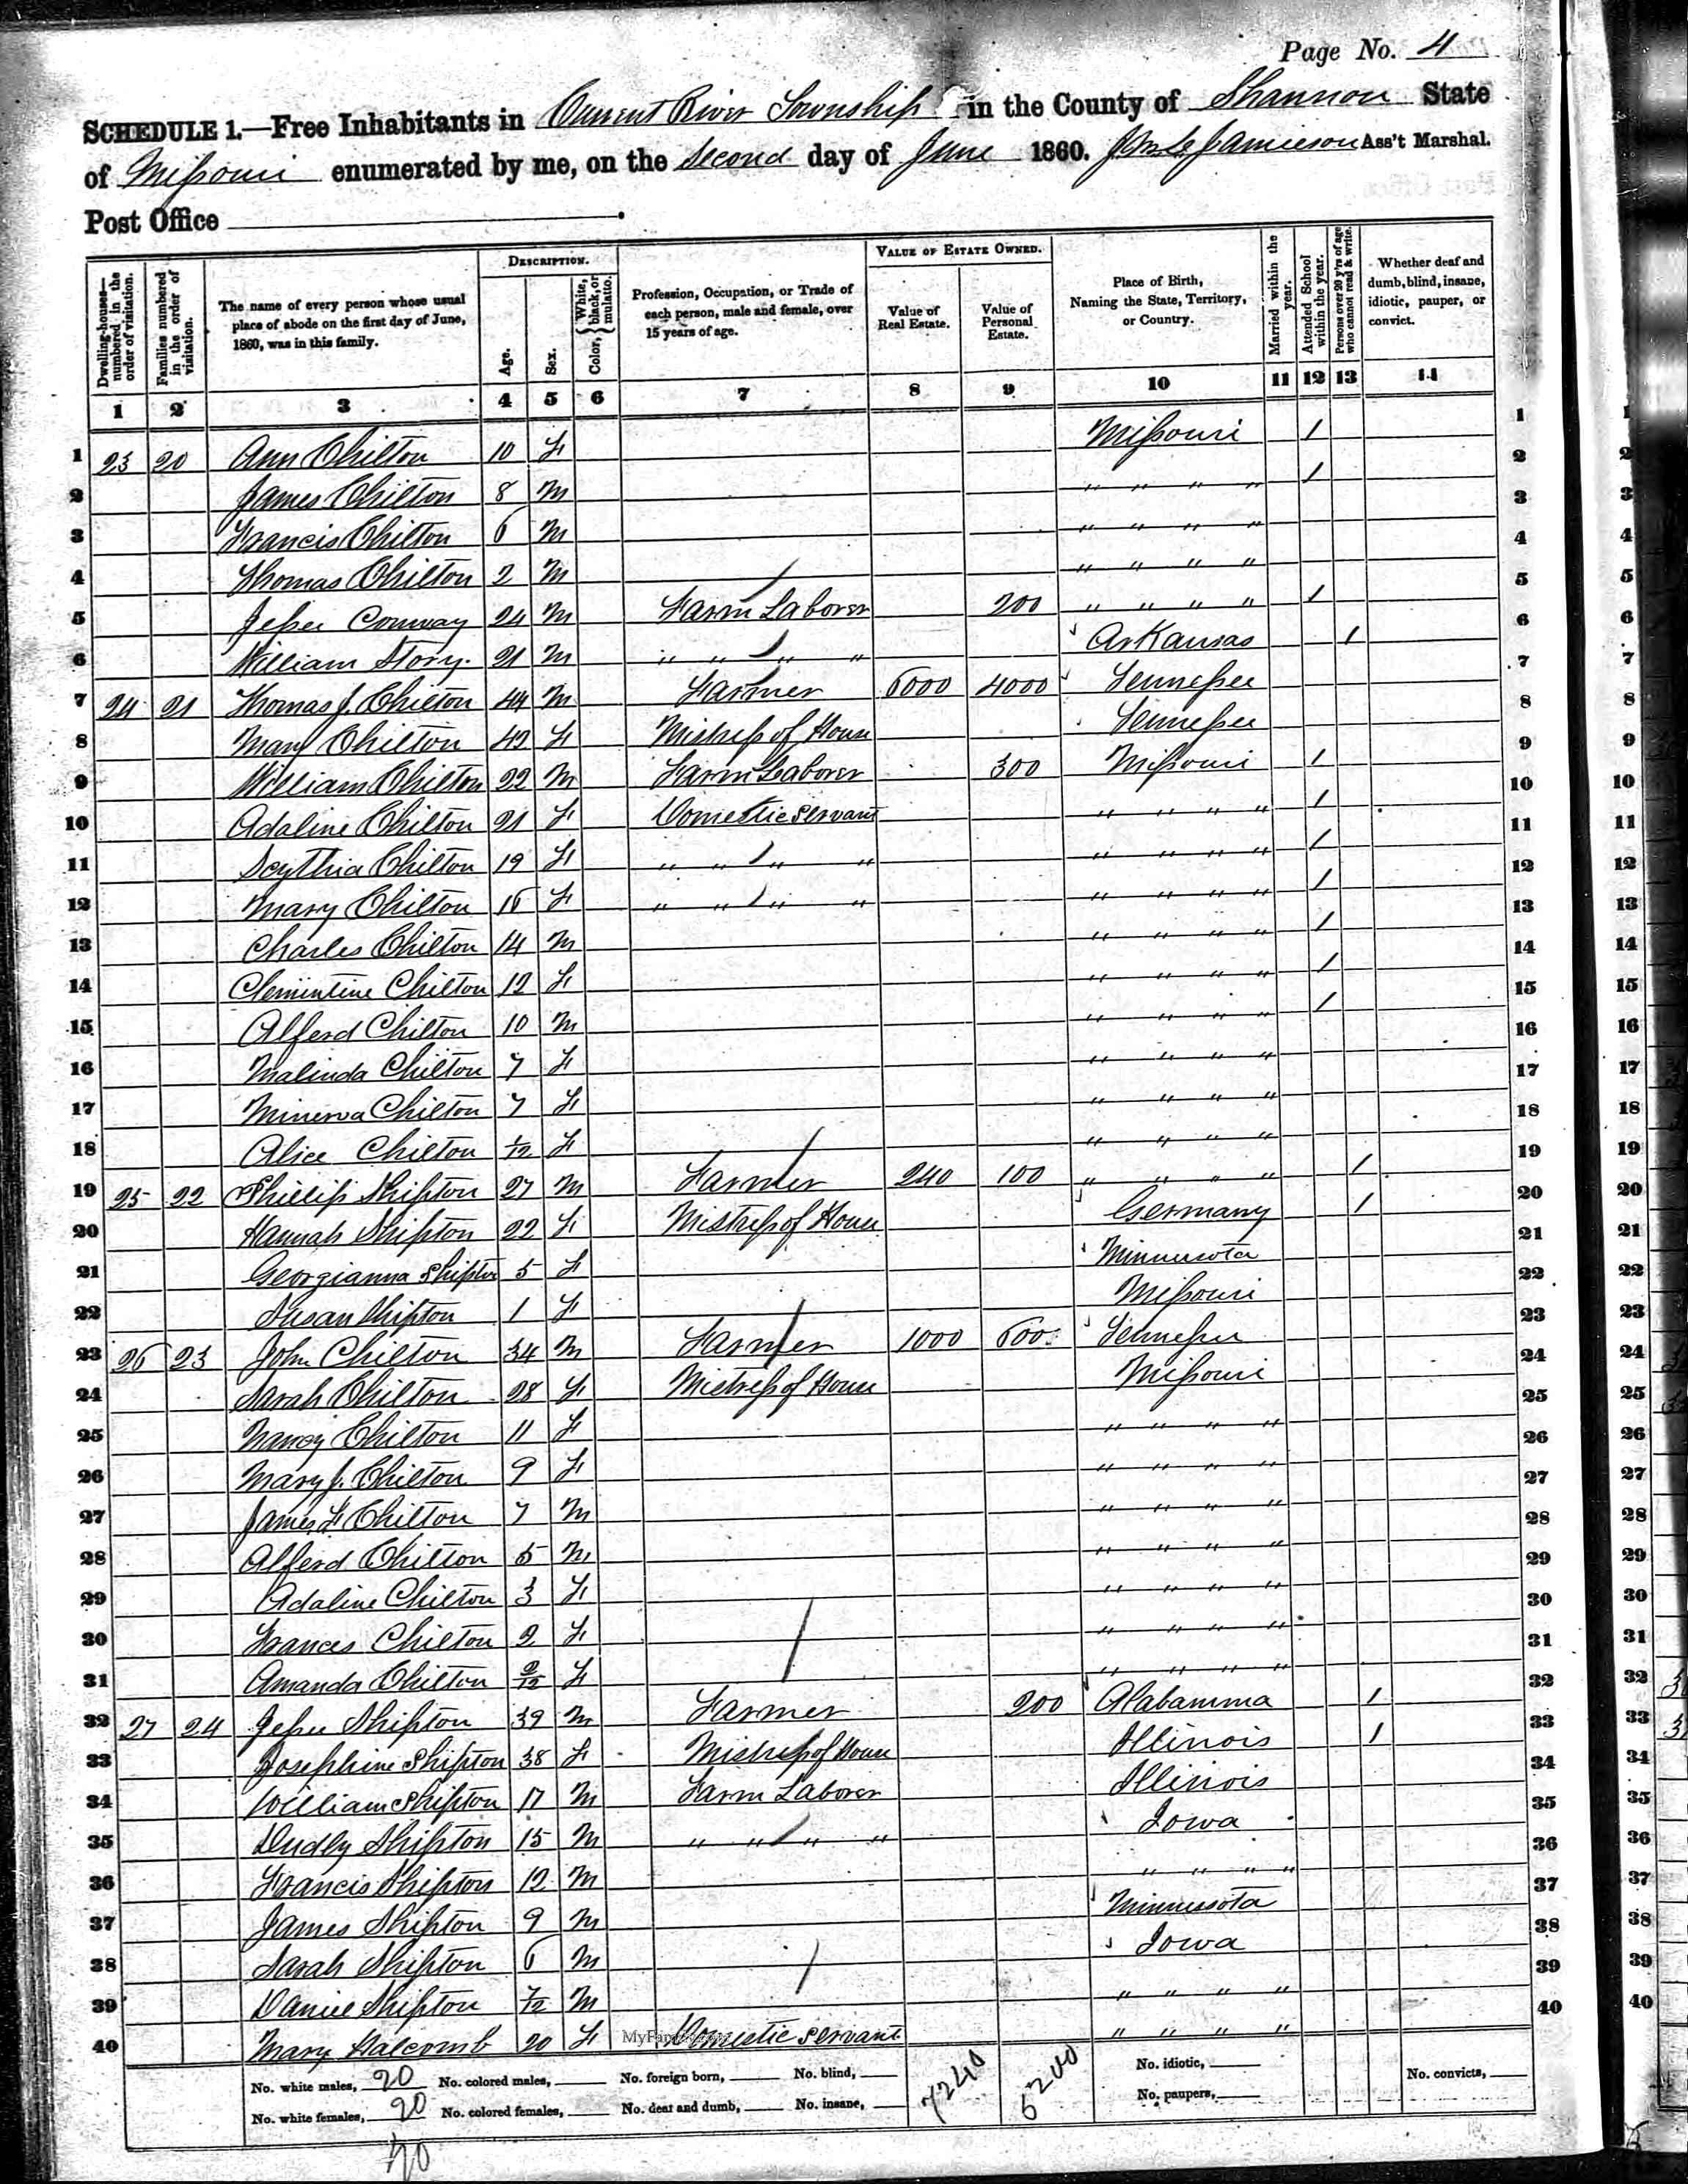 Page No. 4
SCHEDULE 1.—Free Inhabitants in Current River Township in the County of Shannon State
of Missouri enumerated by me, on the second day of June 1860. Jamieson Ass't Marshal.
Post Office
Dwelling-houses— numbered in the order of visitation.
Families numbered in the order of visitation.
The name of every person whose usual place of abode on the first day of June, 1860, was in this family.
DESCRIPTION.
Age.
Sex.
Color, { White, black, or mulatto.
Profession, Occupation, or Trade of each person, male and female, over 15 years of age.
VALUE OF ESTATE OWNED.
Value of Real Estate.
Value of Personal Estate.
Place of Birth, Naming the State, Territory, or Country.
Married within the year.
Attended School within the year.
Persons over 20 y'rs of age who cannot read & write.
Whether deaf and dumb, blind, insane, idiotic, pauper, or convict.
1 2 3 4 5 6 7 8 9 10 11 12 13 14
1 23 20 Ann Chilton 10 F Missouri / 1
2 James Chilton 8 M " " " " / 2
3 Francis Chilton 6 M " " " " 3
4 Thomas Chilton 2 M " " " " 4
5 Jesse Conway 24 M Farm Laborer 200 " " " " / 5
6 William Story. 21 M " " " " Arkansas / 6
7 24 21 Thomas J. Chilton 44 M Farmer 6000 4000 Tennessee 7
8 Mary Chilton 42 F Mistress of House Tennessee 8
9 William Chilton 22 M Farm Laborer 300 Missouri / 9
10 Adaline Chilton 21 F Domestic Servant " " " " / 10
11 Scythia Chilton 19 F " " " " " " " " / 11
12 Mary Chilton 16 F " " " " " " " " / 12
13 Charles Chilton 14 M " " " " / 13
14 Clemintine Chilton 12 F " " " " / 14
15 Alferd Chilton 10 M " " " " / 15
16 Malinda Chilton 7 F " " " " 16
17 Minerva Chilton 7 F " " " " 17
18 Alice Chilton 1/12 F " " " " 18
19 25 22 Phillip Shipton 27 M Farmer 240 100 " " " " / 19
20 Hannah Shipton 22 F Mistress of House Germany / 20
21 Georgianna Shipton 5 F Minnusota 21
22 Susan Shipton 1 F Missouri 22
23 26 23 John Chilton 34 M Farmer 1000 600 Tennessee 23
24 Sarah Chilton 28 F Mistress of House Missouri 24
25 Nancy Chilton 11 F " " " " 25
26 Mary J. Chilton 9 F " " " " 26
27 James F Chilton 7 M " " " " 27
28 Alferd Chilton 5 M " " " " 28
29 Adaline Chilton 3 F " " " " 29
30 Frances Chilton 2 F " " " " 30
31 Amanda Chilton 2/12 F " " " " 31
32 27 24 Jesse Shipton 39 M Farmer 200 Alabamma / 32
33 Josephine Shipton 38 F Mistress of House Illinois / 33
34 William Shipton 17 M Farm Laborer Illinois 34
35 Dudly Shipton 15 M " " " " Iowa 35
36 Francis Shipton 12 M " " " " 36
37 James Shipton 9 M Minnusota 37
38 Sarah Shipton 6 M Iowa 38
39 Daniel Shipton 7/12 M " " " " 39
40 Mary Halcomb 20 F Domestic Servant " " " " 40
No. white males, 20 No. colored males, No. foreign born, No. blind, 7240 5200 No. idiotic, No. convicts,
No. white females, 20 No. colored females, No. deaf and dumb, No. insane, No. paupers,
40